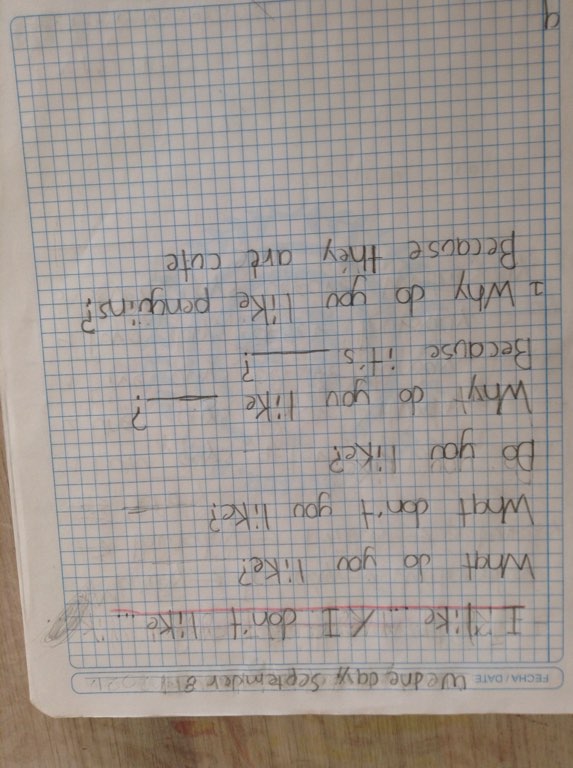 FECHA/DATE Wedne day, September 8th 2021
I like... / I don't like...
What do you like?
What don't you like?
Do you like?
Why do you like ____?
Because it's ____?
1 Why do you like penguins?
Because they are cute